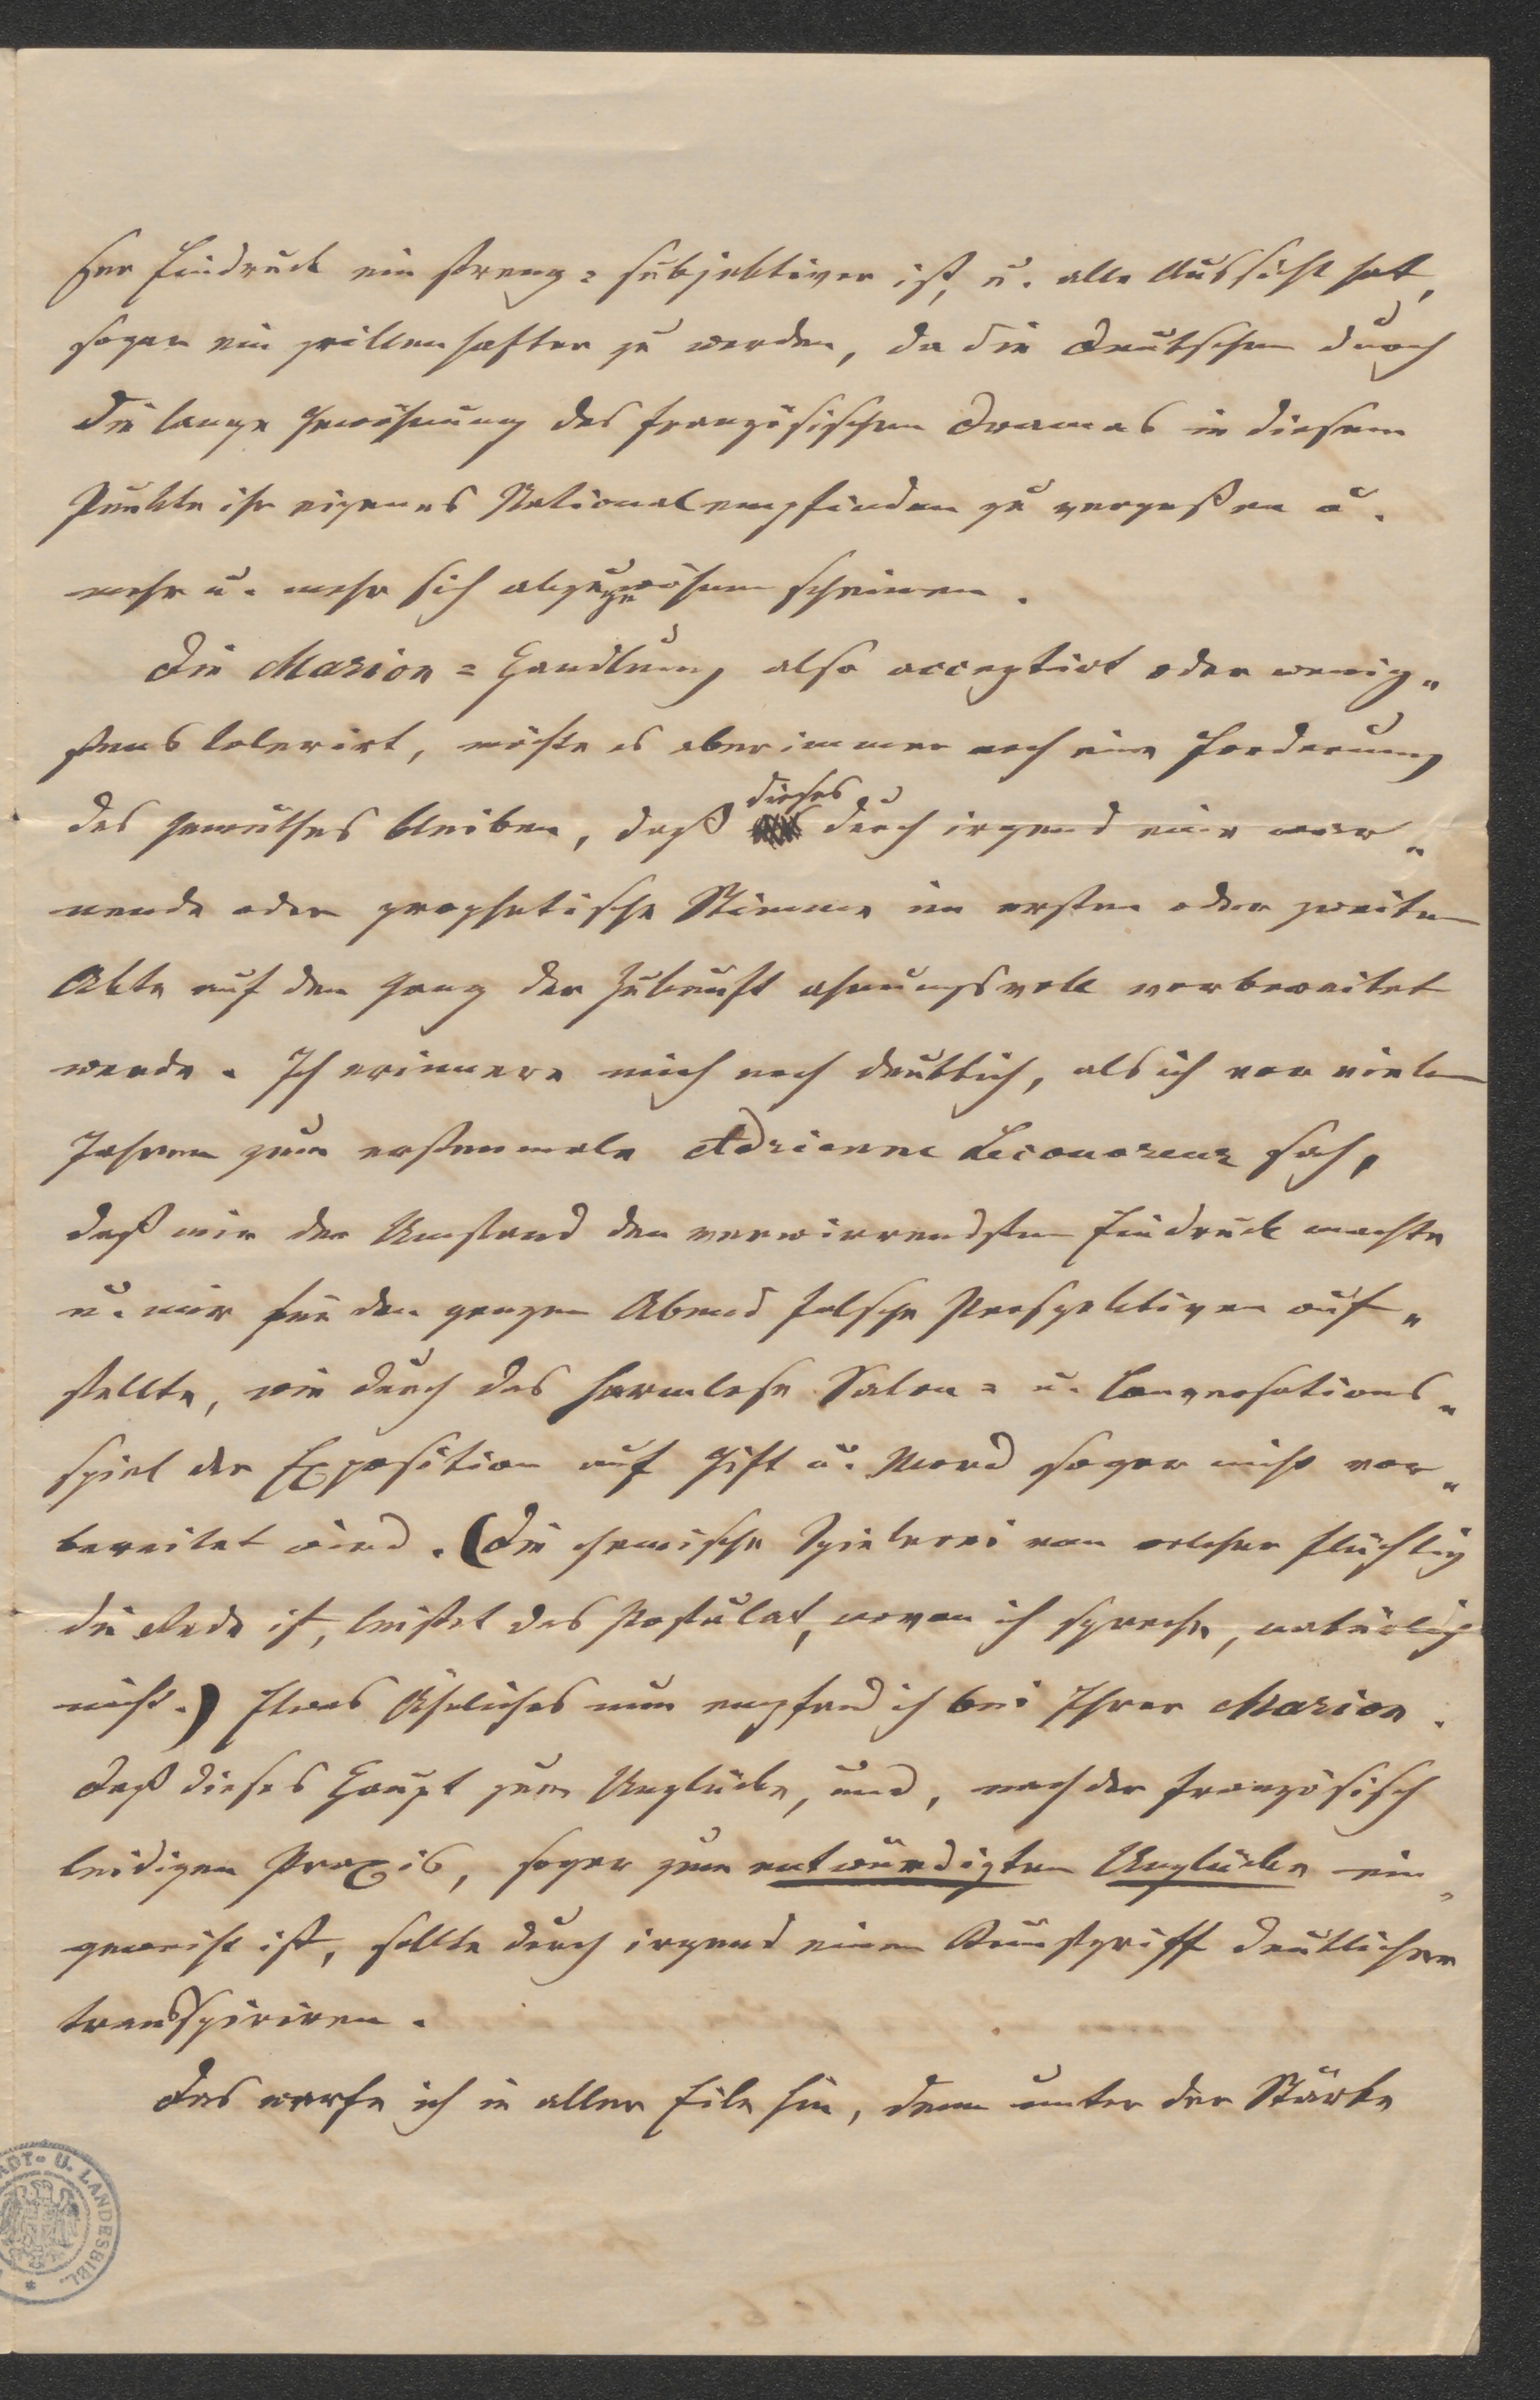 ser Eindruck ein streng-subjektiver ist, u. alle Aussicht hat,
sogar ein grillenhafter zu werden, da die Deutschen durch
die lange Gewöhnung des französischen Dramas in diesem
Punkte ihr eigenes Nationalempfinden zu vergeßen u.
mehr u. mehr sich abzugewöhnen scheinen.
Die Marion-Handlung also acceptirt oder wenig-
stens tolerirt, möchte es aber immer noch eine Forderung
des Gemüthes bleiben, daß dieses durch irgend eine war-
nende oder prophetische Stimme im ersten oder zweiten
Akte auf den Gang der Zukunft ahnungsvoll vorbereitet
werde. Ich erinnere mich noch deutlich, als ich vor vielen
Jahren zum erstenmale Adrienne Lecouvreur sah,
daß mir der Umstand den verwirrendsten Eindruck machte
u. mir für den ganzen Abend falsche Perspektiven auf-
stellte, wie durch das harmlose Salon- u. Conversations-
spiel der Exposition auf Gift u. Mord sogar nicht vor-
bereitet wird. (Die chemische Spielerei von welcher flüchtig
die Rede ist, leistet das Postulat, wovon ich spreche, natürlich
nicht.) Etwas Ähnliches nun empfand ich bei Ihrer Marion.
Daß dieses Haupt zum Unglücke, und, nach der französisch
leidigen Praxis, sogar zum entwürdigten Unglücke ein-
geweiht ist, sollte durch irgend einen Kunstgriff deutlicher
transspiriren.
Das werfe ich in aller Eile hin, denn unter der Stärke
ADT- U. LANDESBIBL.